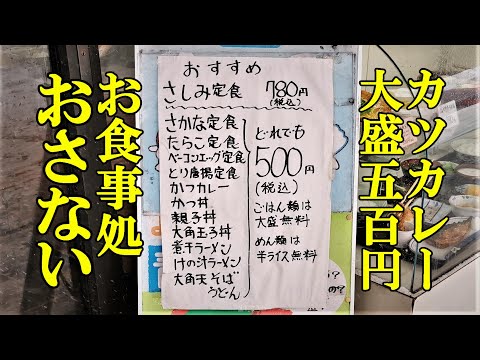 カツカレー
大盛五百円
お食事処
おさない
おすすめ
さしみ定食 780円
(税込)
さかな定食
たらこ定食
ベーコンエッグ定食
とり唐揚定食
かつカレー
かつ丼
親子丼
大角玉子丼
煮干ラーメン
けの汁ラーメン
大角天そば
うどん
どれでも
500円
(税込)
ごはん類は
大盛無料
めん類は
半ライス無料